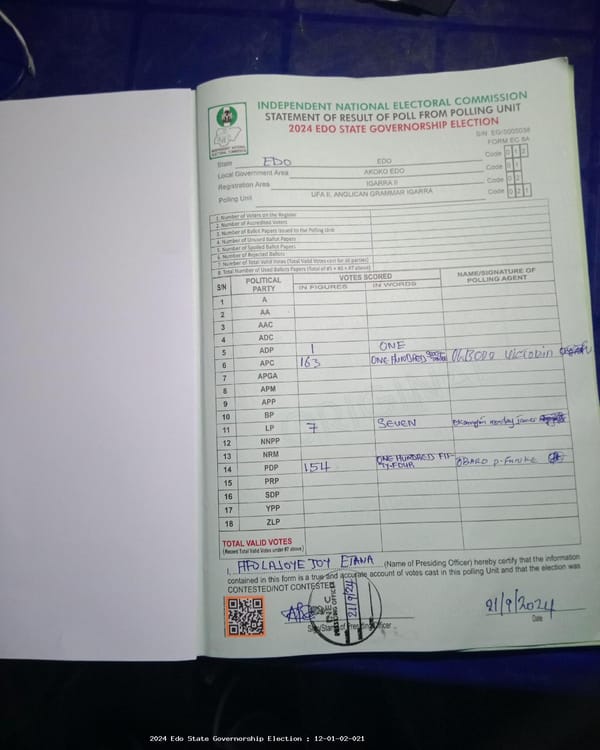 INDEPENDENT NATIONAL ELECTORAL COMMISSION
STATEMENT OF RESULT OF POLL FROM POLLING UNIT
2024 EDO STATE GOVERNORSHIP ELECTION
FORM EC 8A
State EDO EDO Code 0 1 2
Local Government Area AKOKO EDO Code 0 1
Registration Area IGARRA II Code 0 2
Polling Unit UFA II, ANGLICAN GRAMMAR IGARRA Code 0 2 1
1. Number of Voters on the Register
2. Number of Accredited Voters
3. Number of Ballot Papers Issued to the Polling Unit
4. Number of Unused Ballot Papers
5. Number of Spoiled Ballot Papers
6. Number of Rejected Ballots
7. Number of Total Valid Votes (Total Valid Votes cast for all parties)
8. Total Number of Used Ballots Papers (Total of #5 + #6 + #7 above)
S/N POLITICAL PARTY VOTES SCORED NAME/SIGNATURE OF POLLING AGENT
IN FIGURES IN WORDS
1 A
2 AA
3 AAC
4 ADC
5 ADP 1 ONE
6 APC 163 ONE HUNDRED
7 APGA
8 APM
9 APP
10 BP
11 LP 7 SEVEN
12 NNPP
13 NRM
14 PDP 154 ONE HUNDRED FIFTY-FOUR
15 PRP
16 SDP
17 YPP
18 ZLP
TOTAL VALID VOTES
(Record Total Valid Votes under #7 above)
I, AFOLAJOYE JOY ETANA (Name of Presiding Officer) hereby certify that the information
contained in this form is a true and accurate account of votes cast in this polling Unit and that the election was
CONTESTED/NOT CONTESTED
INEC
21/9/24
Sign/Stamp of Presiding Officer
21/9/2024
Date
2024 Edo State Governorship Election : 12-01-02-021